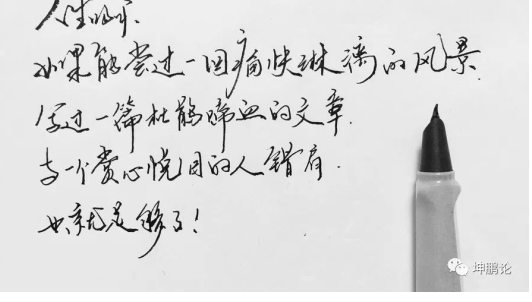 人生
如果能尝过一回痛快淋漓的风景.
写过一篇杜鹃啼血的文章.
与一个赏心悦目的人错肩.
也就足够了!
坤鹏论